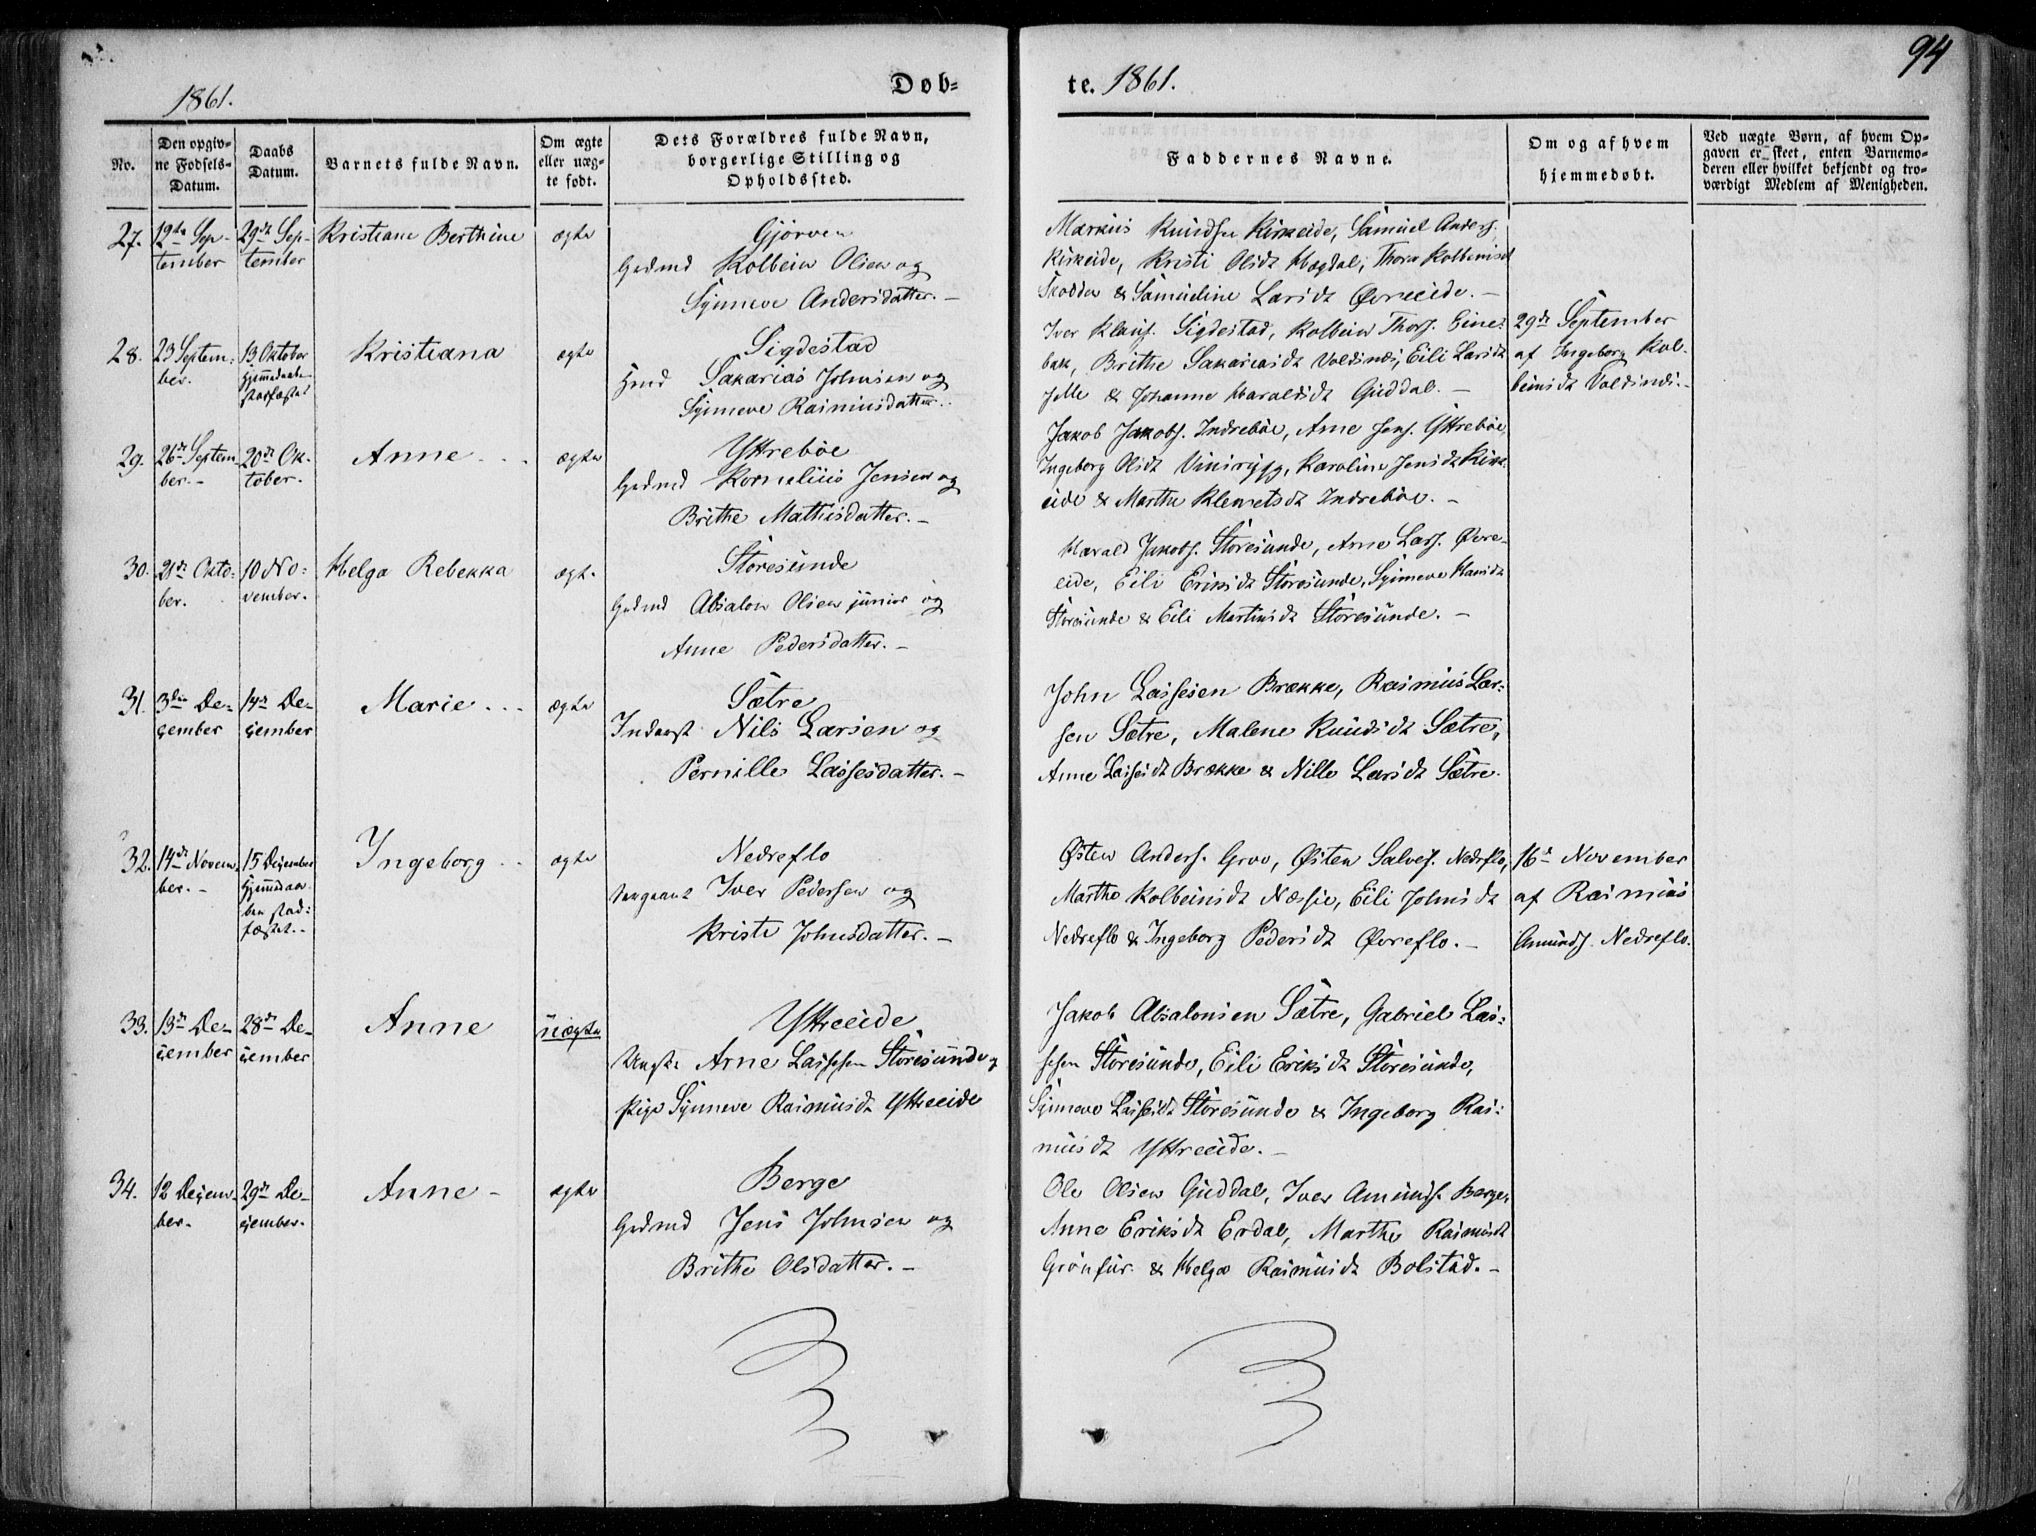 94
1861.
Døb=
te. 1861.
No.
Den opgiv-
ne Fødsels-
Datum.
Daabs
Datum.
Barnets fulde Navn.
Om ægte
eller uæg-
te født.
Dets Forældres fulde Navn,
borgerlige Stilling og
Opholdssted.
Faddernes Navne.
Om og af hvem
hjemmedøbt.
Ved uægte Børn, af hvem Op-
gaven er skeet, enten Barnemo-
deren eller hvilket bekjendt og tro-
værdigt Medlem af Menigheden.
27.
19de Sep-
tember
29de Sep-
tember
Kristiane Berthine
ægte
Gjørven
Gdmd Kolbein Olsen og
Synneve Andersdatter. -
Markus Knudsen Kirkeide, Samuel Anders.
Kirkeide, Kristi Olsdt Hægdal, Thora Kolbeinsdt
Skodden & Samueline Larsdt Øvreeide. -
28.
23 Septem-
ber.
13 Oktober
Hjemmedaaben
stadfæstet
Kristiana
ægte
Sigdestad
Hmd Sakarias Johnsen og
Synneve Rasmusdatter.
Iver Klaus. Sigdestad, Kolbein Thors. Eine-
bak, Brithe Sakariasdt Voldsnes, Eili Larsdt
& Johanne Haraldsdt Guddal. -
29de September
af Ingeborg Kol-
beinsdt Voldsnes. -
29.
26de Septem-
ber. -
20de Ok-
tober.
Anne
ægte
Yttrebøe
Gdmd Kornelius Jensen og
Brithe Mathisdatter. -
Jakob Jakobs. Indrebøe, Arne Jens. Yttrebøe,
Ingeborg Olsdt Vinsrygg, Karoline Jensdt Kirk-
eide & Marthe Klemetsdt Indrebøe. -
30.
21de Okto-
ber.
10 No-
vember.
Helga Rebekka
ægte
Storesunde
Gdmd Absalon Olsen junior og
Anne Pedersdatter. -
Harald Jakobs. Storesunde, Arne Lars. Øvre-
eide, Eili Eriksdt Storesunde, Synneve Hansdt
Storesunde & Eili Martinsdt Storesunde. -
31.
3die De-
cember
14de De-
cember
Marie
ægte
Sætre
Inderst Nils Larsen og
Pernille Lassesdatter. -
John Lassesen Brække, Rasmus Lar-
sen Sætre, Malene Knudsdt Sætre,
Anne Lassesdt Brække & Nille Larsdt Sætre.
32.
14de Novem-
ber. -
15 December
Hjemmedaa-
ben stad-
fæstet. -
Ingeborg
ægte
Nedreflo
Iver Pedersen og
Kristi Johnsdatter. -
Østen Anders. Grov, Østen Salves. Nedreflo,
Marthe Kolbeinsdt Næsje, Eili Johnsdt
Nedreflo & Ingeborg Pedersdt Øvreflo. -
16de November
af Rasmus
Amunds. Nedreflo.
33.
13de De-
cember
28de De-
cember
Anne
uægte
Yttreeide
Ungk. Arne Lassesen Storesunde og
Pige Synneve Rasmusdt Yttreeide
Jakob Absalonsen Sætre, Gabriel Las-
sesen Storesunde, Eili Eriksdt Storesunde,
Synneve Lassesdt Storesunde & Ingeborg Ras-
musdt Yttreeide. -
34.
12 Decem-
ber.
29de De-
cember.
Anne -
ægte
Berge
Gdmd Jens Johnsen og
Brithe Olsdatter. -
Ole Olsen Guddal, Iver Amunds. Berge,
Anne Eriksdt Erdal, Marthe Rasmusdt
Grønfur & Helga Rasmusdt Bolstad. -